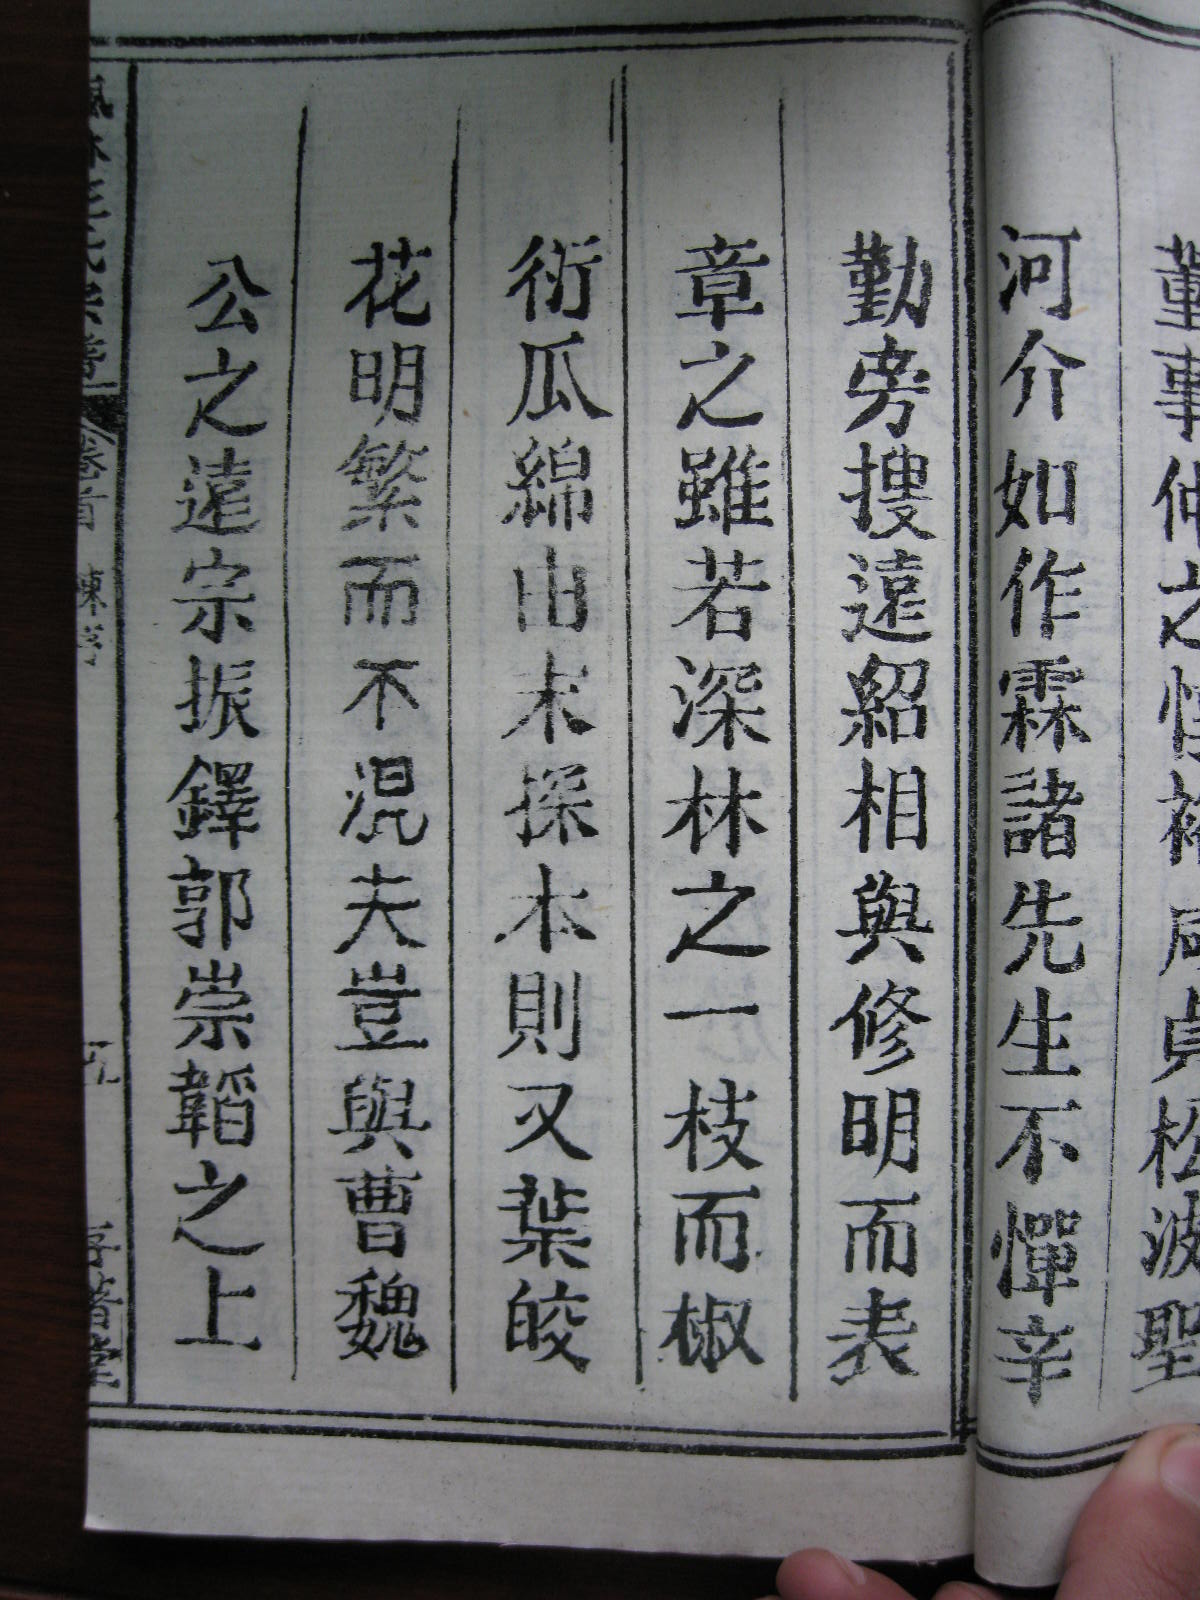 董事仲之
貞松波聖
河介如作霖諸先生不憚辛
勤旁搜遠紹相與修明而表
章之雖若深林之一枝而椒
衍瓜綿由末探本則又葉皎
花明繁而不混夫豈與曹魏
公之遠宗振鐸郭崇韜之上